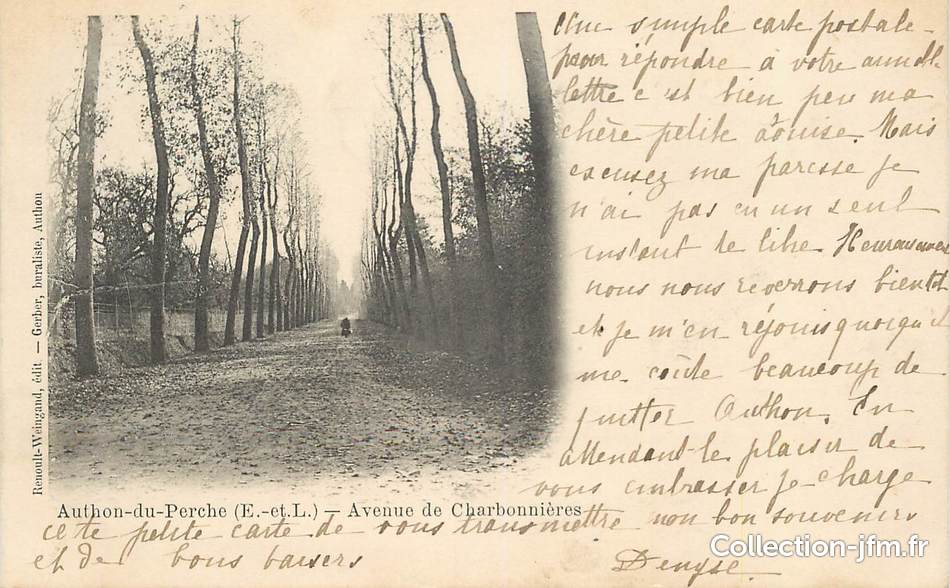 Une simple carte postale
pour répondre à votre
lettre c'est bien peu ma
chère petite Louise. Mais
excusez ma paresse je
n'ai pas eu un seul
instant de libre
nous nous reverrons bientot
et je m'en réjouis quoiqu'il
me coûte beaucoup de
quitter Authon. En
attendant le plaisir de
vous embrasser je charge
cette petite carte de vous transmettre mon bon souvenir
et de bons baisers
Denyse
Authon-du-Perche (E.-et.L.) — Avenue de Charbonnières
Renoult-Weingand, édit — Gerber, buraliste, Authon
Collection-jfm.fr